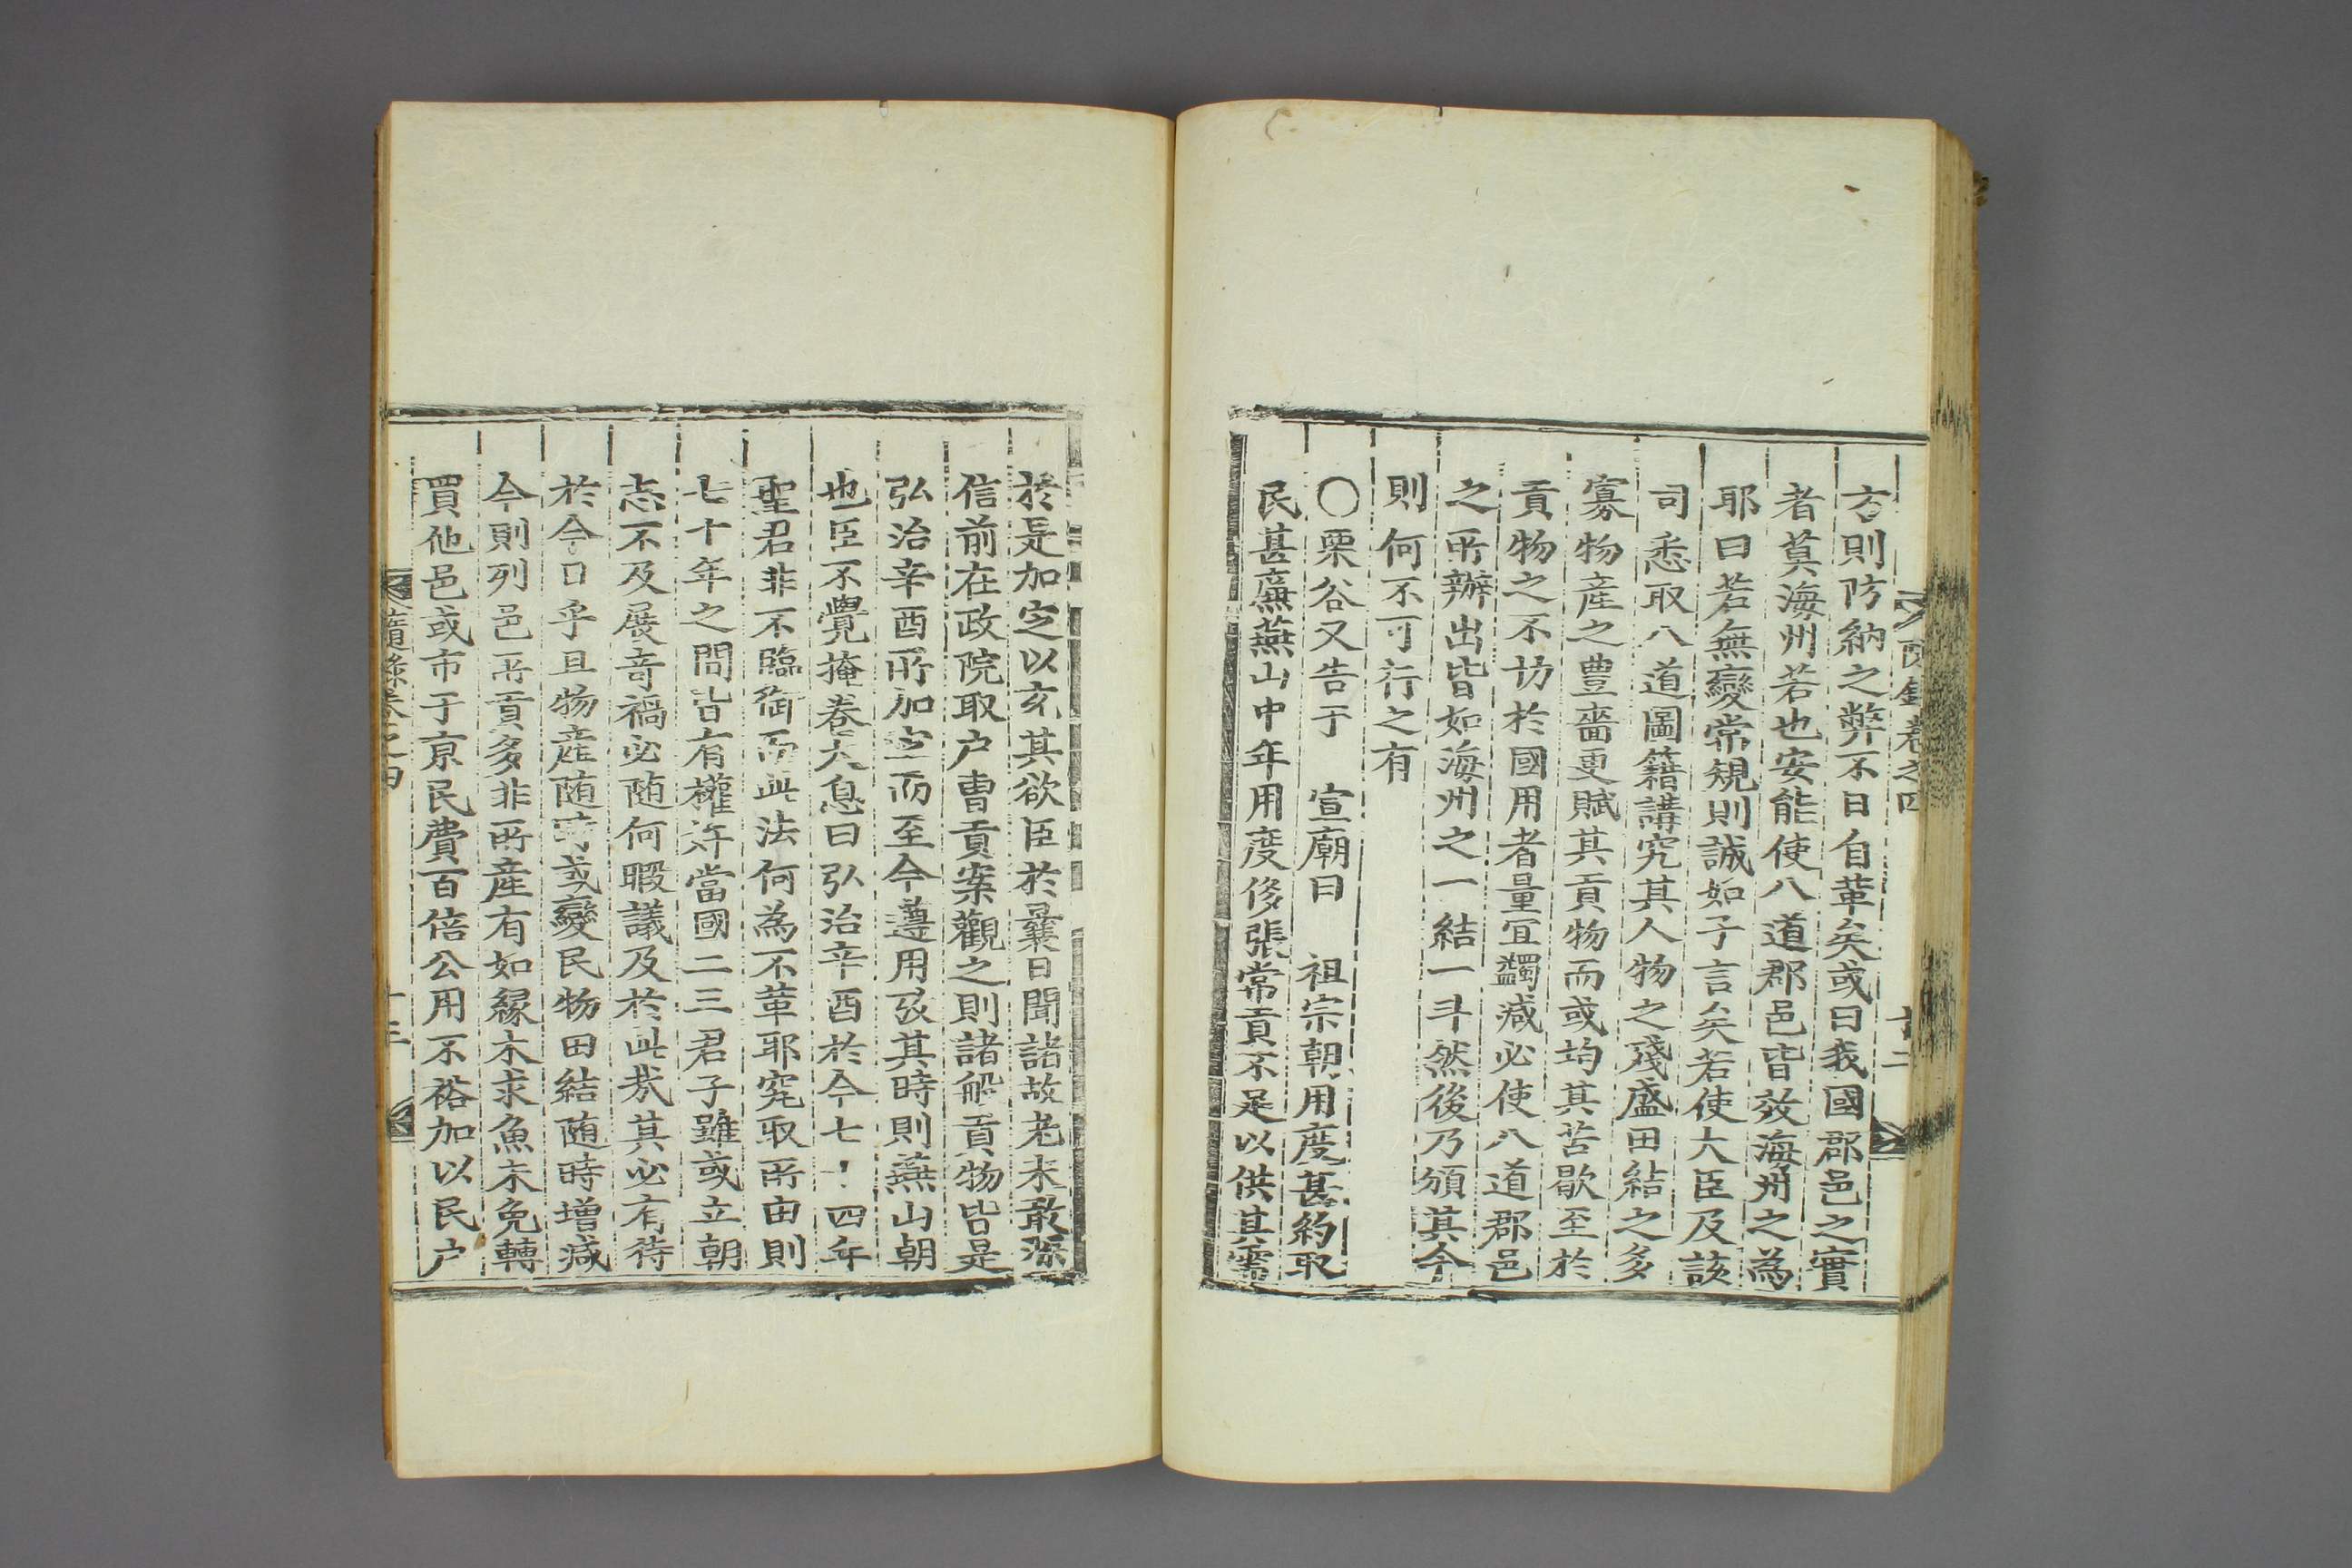 隨錄卷之四
十二
方則防納之弊不日自革矣或曰我國郡邑之實
者莫海州若也安能使八道郡邑皆效海州之為
耶曰若無變常規則誠如子言矣若使大臣及該
司悉取八道圖籍講究其人物之殘盛田結之多
寡物產之豊嗇更賦其貢物而或均其苦歇至於
貢物之不切於國用者量宜蠲减必使八道郡邑
之所辦出皆如海州之一結一斗然後乃頒其令
則何不可行之有
○栗谷又告于 宣廟曰 祖宗朝用度甚約取
民甚廉燕山中年用度侈張常貢不足以供其需
於是加定以充其欲臣於曩日聞諸故老未敢深
信前在政院取户曹貢案觀之則諸般貢物皆是
弘治辛酉所加定而至今遵用攷其時則燕山朝
也臣不覺掩卷大息曰弘治辛酉於今七十四年
聖君非不臨御而此法何為不革耶究取所由則
七十年之間皆有權奸當國二三君子雖或立朝
志不及展奇禍必随何暇議及於此哉其必有待
於今日乎且物產随時或變民物田結随時增减
今則列邑所貢多非所產有如緣木求魚未免轉
買他邑或市于京民費百倍公用不裕加以民户
隨錄卷之四
十三